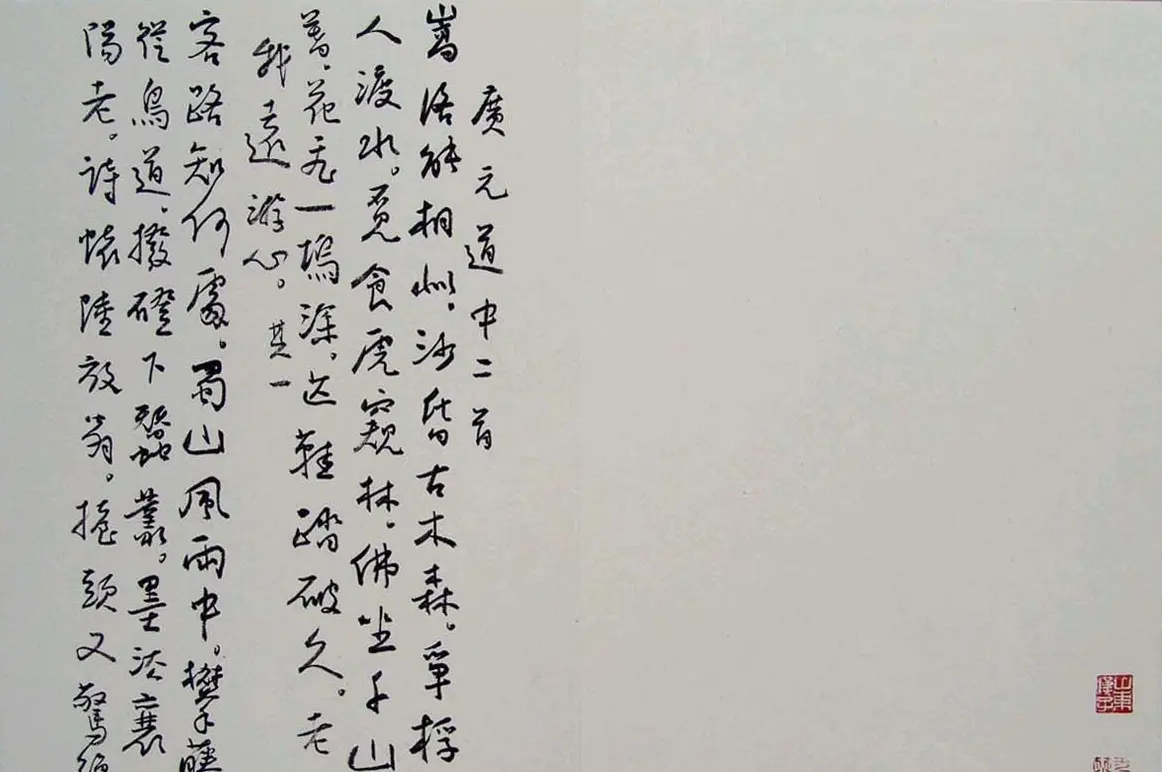 廣元道中二首
嵩洛能相似，沙昏古木森。爭桴
人渡水。覓食虎窺林。佛坐千山
花一塢深。芒鞋踏破久。老
我遠游心。其一
客路知何處，蜀山風雨中。攀藤
從鳥道，撥磴下蠶叢。墨法襄
陽老。詩懷陸放翁。頭又驚
山東漢子